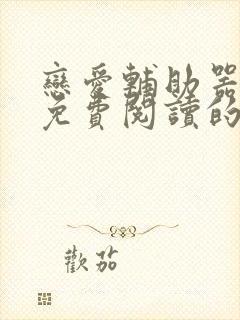 戀愛輔助器
免費閱讀的
歡茄